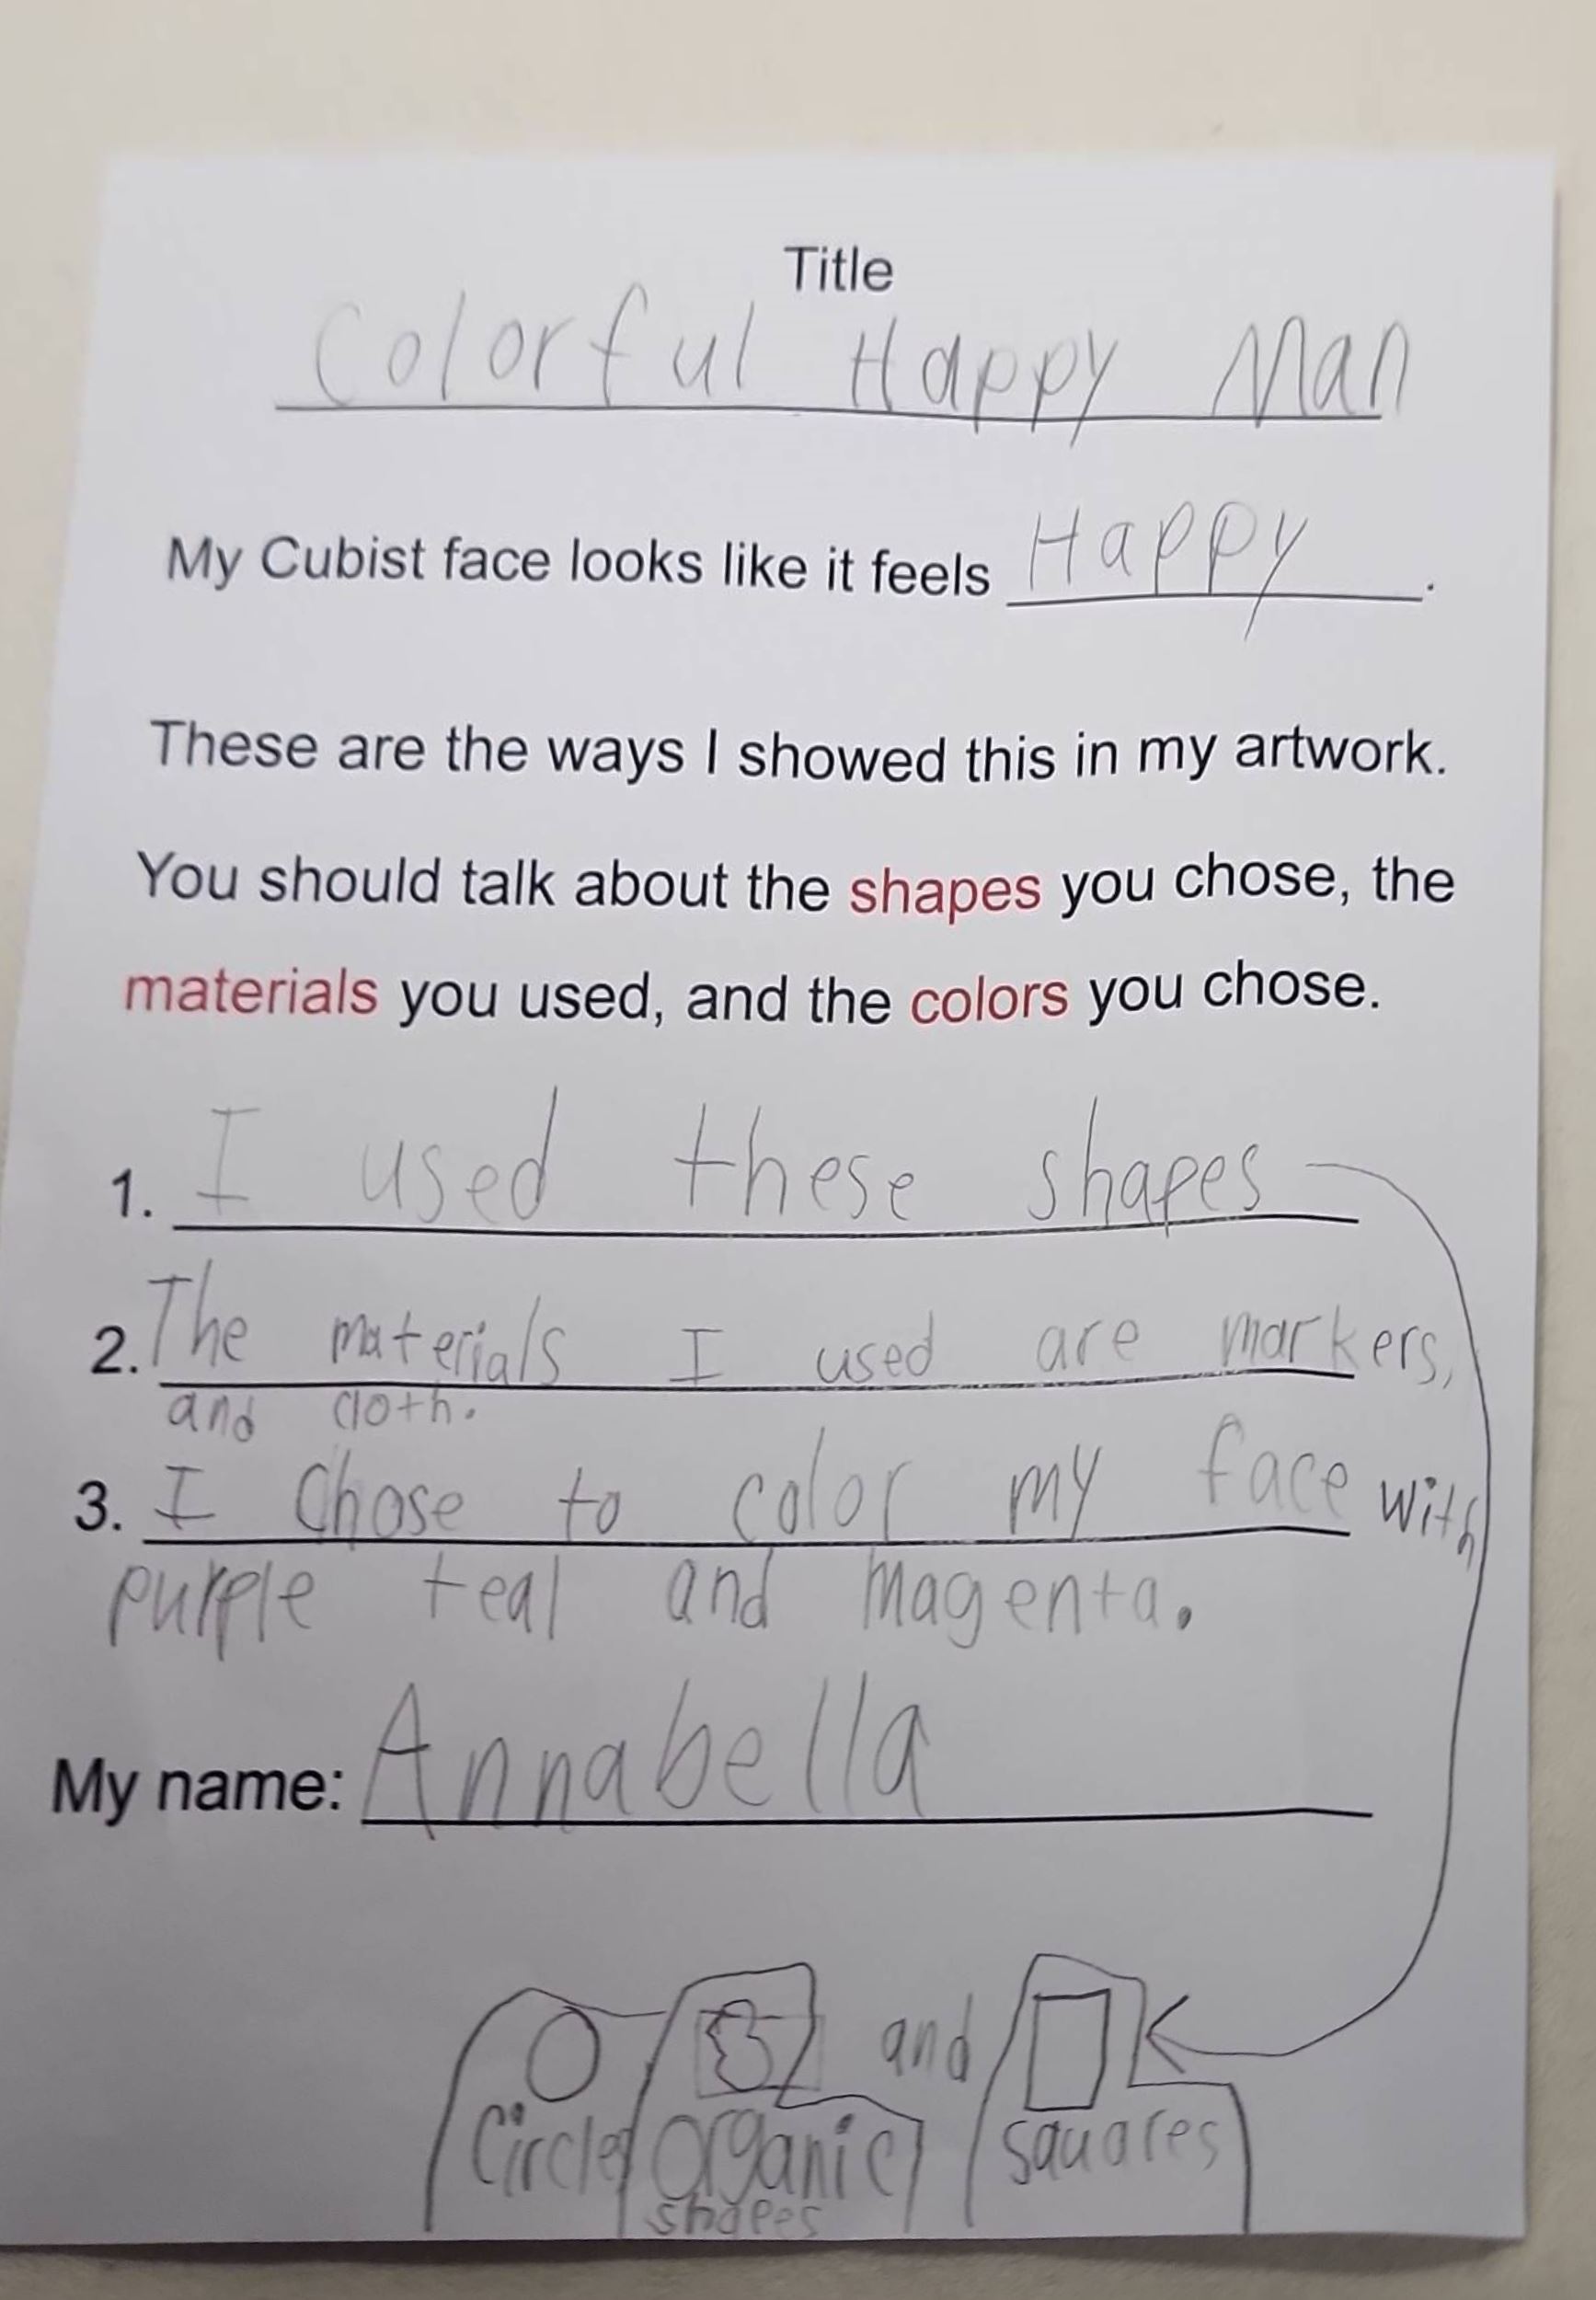 Title
Colorful Happy Man
My Cubist face looks like it feels Happy.
These are the ways I showed this in my artwork.
You should talk about the shapes you chose, the
materials you used, and the colors you chose.
1. I used these shapes
2. The materials I used are markers,
and cloth.
3. I chose to color my face with
purple teal and magenta.
My name: Annabella
and
Circle organic squares
shapes